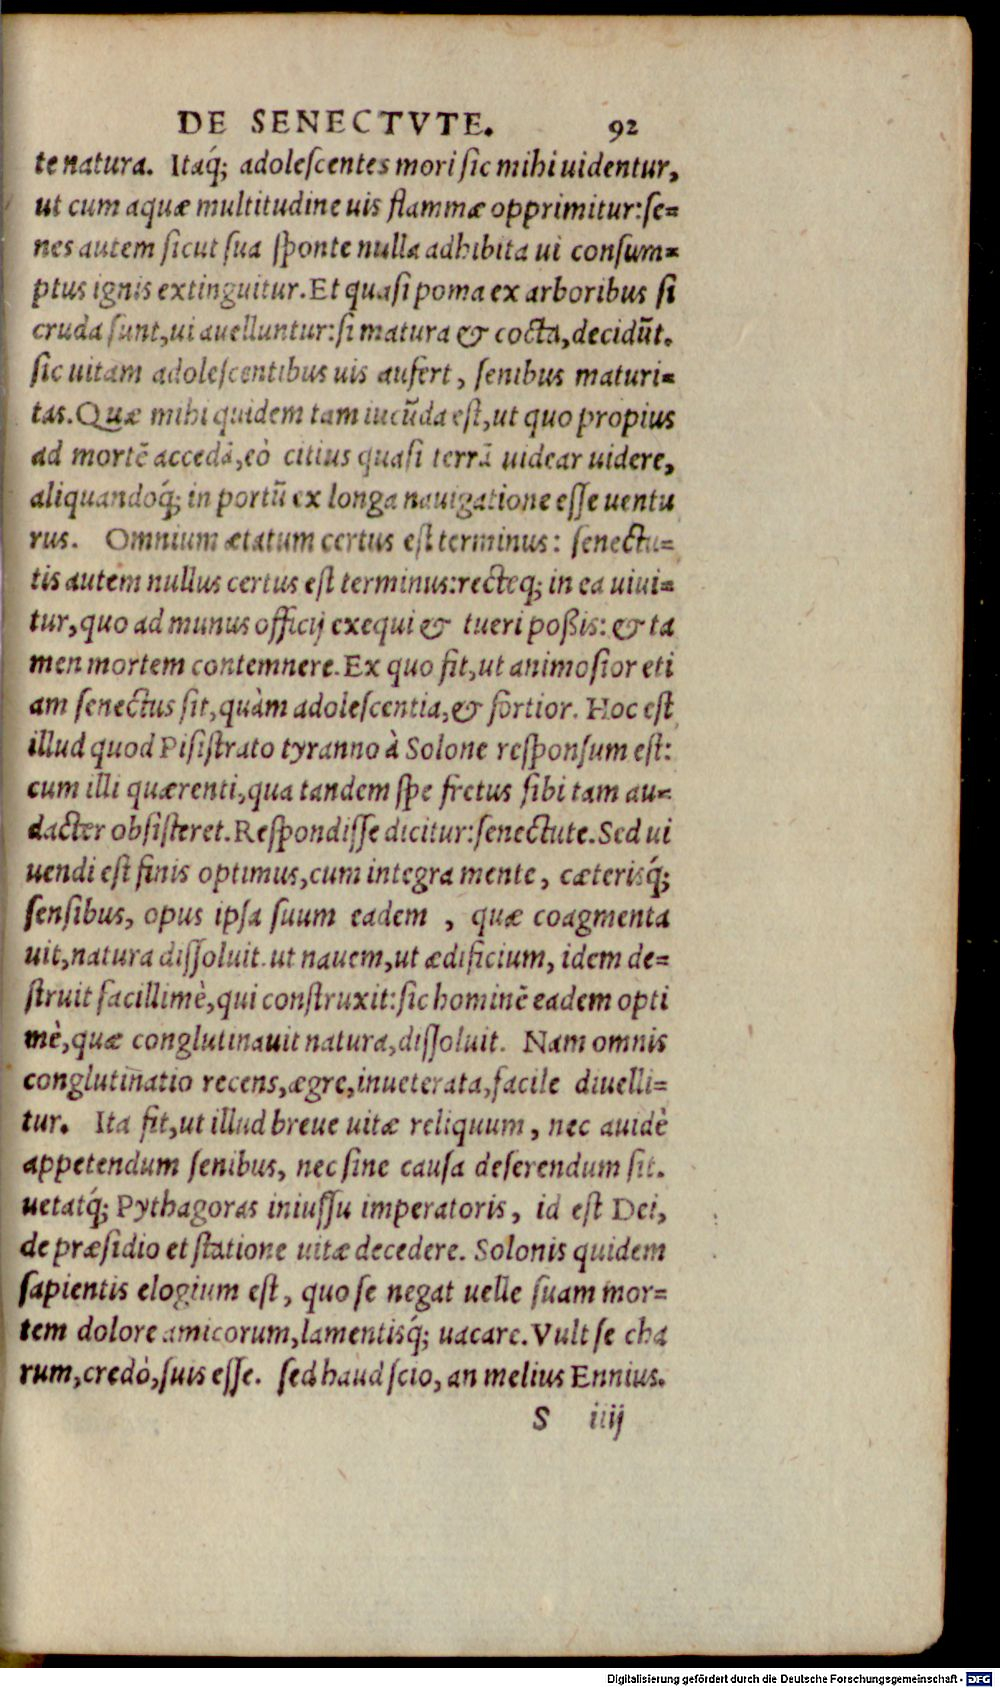 DE SENECTVTE. 92
te natura. Itaq́; adoleſcentes mori ſic mihi uidentur,
ut cum aquæ multitudine uis flammæ opprimitur: ſe=
nes autem ſicut ſua ſponte nulla adhibita ui conſum=
ptus ignis extinguitur. Et quaſi poma ex arboribus ſi
cruda ſunt, ui auelluntur: ſi matura & cocta, decidūt.
ſic uitam adoleſcentibus uis aufert, ſenibus maturi=
tas. Quæ mihi quidem tam iucūda eſt, ut quo propius
ad mortē accedā, eò citius quaſi terrā uidear uidere,
aliquandoq́; in portū ex longa nauigatione eſſe uentu
rus. Omnium ætatum certus eſt terminus: ſenectu=
tis autem nullus certus eſt terminus: recteq; in ea uiui=
tur, quo ad munus officij exequi & tueri poßis: & ta
men mortem contemnere. Ex quo fit, ut animoſior eti
am ſenectus ſit, quàm adoleſcentia, & fortior. Hoc eſt
illud quod Piſiſtrato tyranno à Solone reſponſum eſt:
cum illi quærenti, qua tandem ſpe fretus ſibi tam au=
dacter obſiſteret. Reſpondiſſe dicitur: ſenectute. Sed ui
uendi eſt finis optimus, cum integra mente, cæterisq́;
ſenſibus, opus ipſa ſuum eadem, quæ coagmenta
uit, natura diſſoluit. ut nauem, ut ædificium, idem de=
ſtruit facillimè, qui conſtruxit: ſic hominē eadem opti
mè, quæ conglutinauit natura, diſſoluit. Nam omnis
conglutinatio recens, ægre, inueterata, facile diuelli=
tur. Ita fit, ut illud breue uitæ reliquum, nec auidè
appetendum ſenibus, nec ſine cauſa deſerendum ſit.
uetatq́; Pythagoras iniuſſu imperatoris, id eſt Dei,
de præſidio et ſtatione uitæ decedere. Solonis quidem
ſapientis elogium eſt, quo ſe negat uelle ſuam mor=
tem dolore amicorum, lamentisq́; uacare. Vult ſe cha
rum, credò, ſuis eſſe. ſed haud ſcio, an melius Ennius.
S iiij
Digitalisierung gefördert durch die Deutsche Forschungsgemeinschaft - DFG